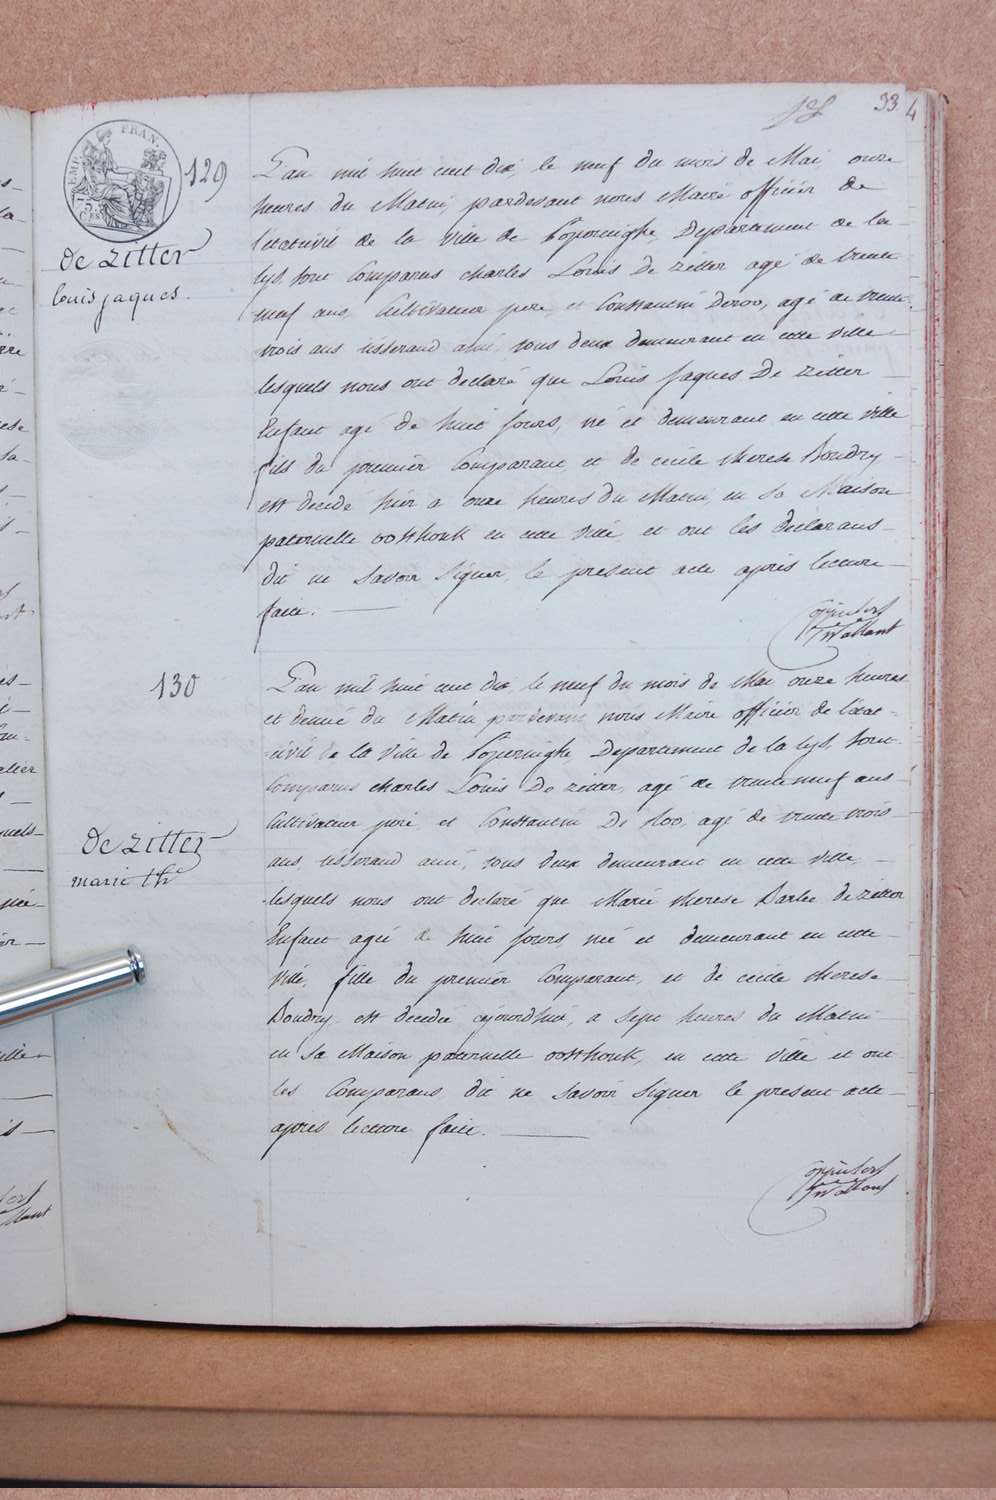 33. 4
EMP. FRAN.
129
de zitter
louis jaques.
L'an mil huit cent dix, le neuf du mois de Mai, onze
heures du Matin, pardevant nous Maire officier de
l'etatcivil de la Ville de Poperinghe, Departement de la
lys, sont Comparus charles Louis De zitter agé de trente
neuf ans, Cultivateur pere et Constantin Deroo, agé de trente
trois ans tisserand ami, tous deux demeurant en cette ville
lesquels nous ont declaré que Louis Jaques De zitter
Enfant agé de huit jours, né et demeurant en cette ville
fils du premier Comparant, et de cecile therese Boudry
est decedé hier a onze heures du Matin, en sa Maison
paternelle oosthouk en cette ville, et ont les declarans
dit ne savoir signer, le present acte après lecture
faite.
130
de zitter
marie th.e
L'an mil huit cent dix, le neuf du mois de Mai onze heures
et demie du Matin pardevant nous Maire officier de l'etat=
=civil de la Ville de Poperinghe Departement de la lys, sont
Comparus charles Louis De zitter, agé de trenteneuf ans
Cultivateur peré et Constantin De Roo, agé de trente trois
ans tisserand ami, tous deux demeurant en cette ville,
lesquels nous ont declaré que Marie therese Barbe de zitter
Enfant agée de huit jours, née et demeurant en cette
Ville, fille du premier Comparant, et de cecile therese
Boudry est decedée ajourdhui, a sept heures du Matin
en sa Maison paternelle oosthouk, en cette ville et ont
les Comparans dit ne savoir signer le present acte
après lecture faite.